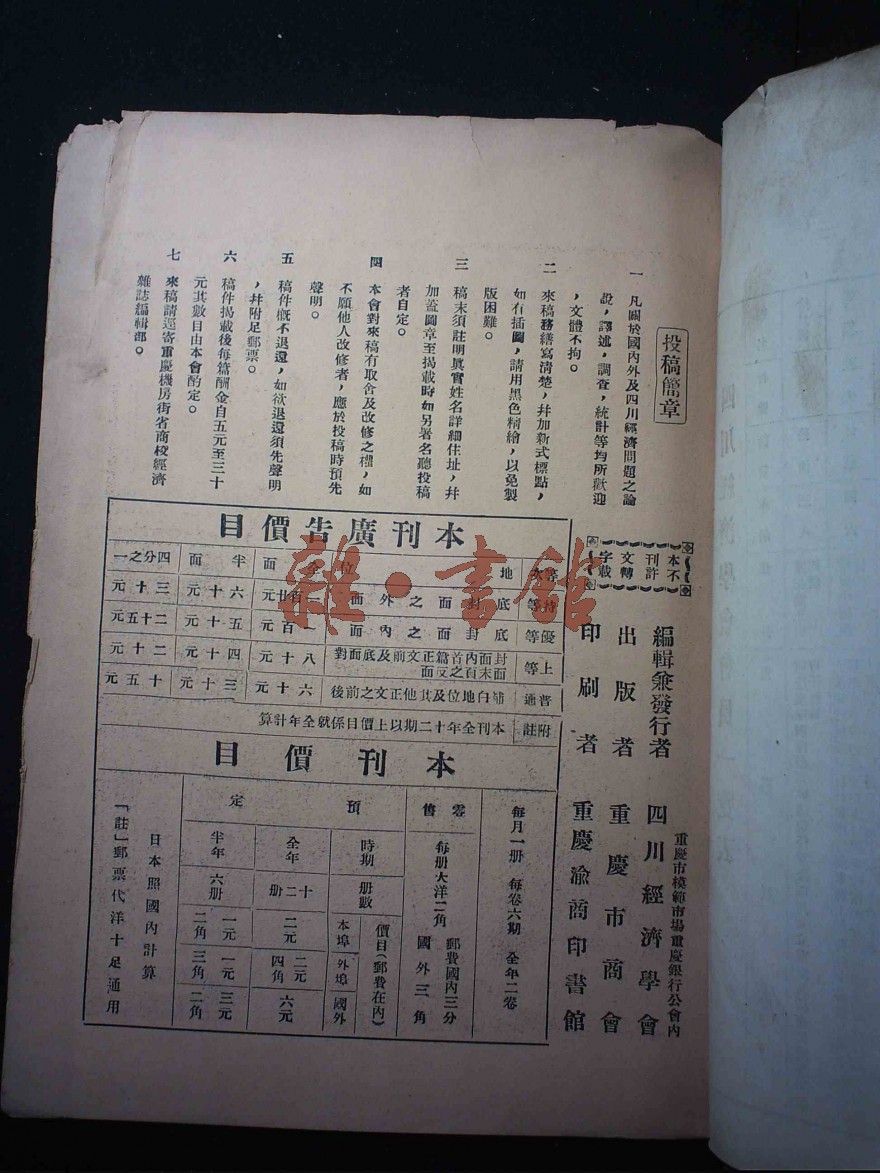 投稿簡章
一 凡關於國內外及四川經濟問題之論
說，譯述，調查，統計等均所歡迎
，文體不拘。
二 來稿務繕寫清楚，幷加新式標點，
如有插圖，請用黑色精繪，以免製
版困難。
三 稿末須註明眞實姓名詳細住址，幷
加蓋圖章至揭載時如另署名聽投稿
者自定。
四 本會對來稿有取舍及改修之權，如
不願他人改修者，應於投稿時預先
聲明。
五 稿件概不退還，如欲退還須先聲明
，幷附足郵票。
六 稿件揭載後每篇酬金自五元至三十
元其數目由本會酌定。
七 來稿請逕寄重慶機房街省商校經濟
雜誌編輯部。
本刊文字
不許轉載
重慶市模範市場重慶銀行公會內
編輯兼發行者 四川經濟學會
出版者 重慶市商會
印刷者 重慶渝商印書館
本刊廣告價目
等次 地位 全面 半面 四分之一
特等 底封面之外面 一百廿元 六十元 三十元
優等 底封面之內面 一百元 五十元 二十五元
上等 封面內首篇正文前及底面對面末頁之反面 八十元 四十元 二十元
普通 補白地位及其他正文之前後 六十元 三十元 十五元
附註 本刊全年十二期以上價目係就全年計算
本刊價目
每月一册 每卷六期 全年二卷
零售 每册大洋二角 郵費國內三分 國外三角
預定
時期 册數 價目（郵費在內） 本埠 外埠 國外
全年 十二册 二元 二元四角 六元
半年 六册 一元二角 一元三角 三元二角
日本照國內計算
「註」郵票代洋十足通用
雜·書館